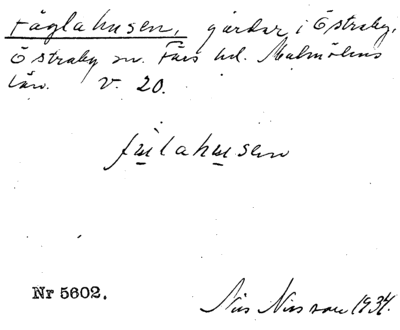 Fåglahusen, gårdar i Östraby,
Östraby sn. Färs hd. Malmöhus
län. V. 20.
fɯlahɯsen
Nr 5602.
Nils Nilsson 1934.